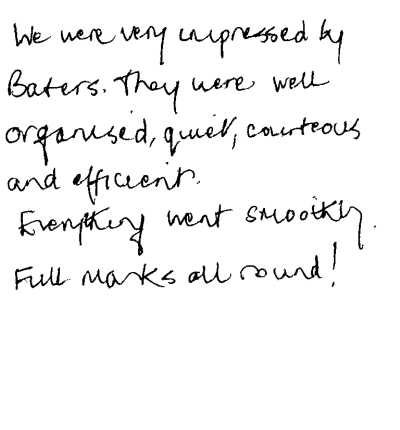 We were very impressed by
Baters. They were well
organised, quiet, courteous
and efficient.
Everything went smoothly.
Full marks all round!